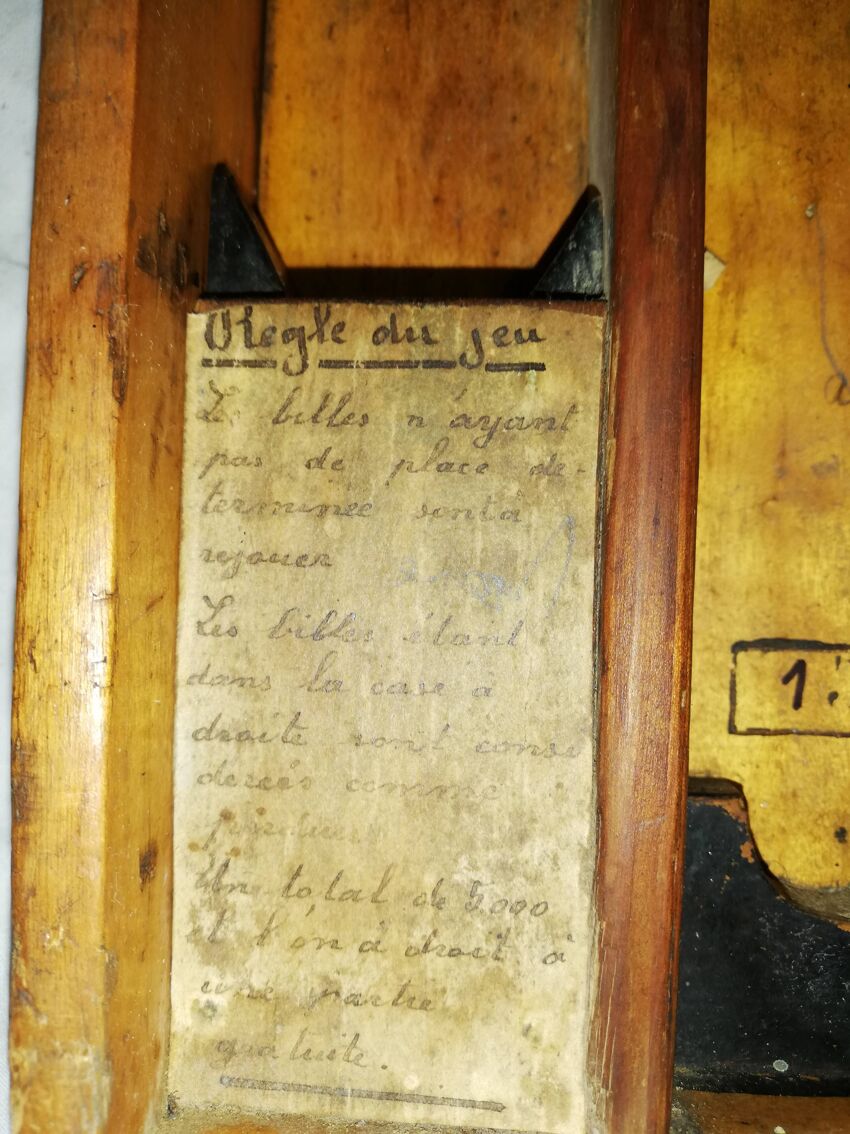 Règle du jeu
Les billes n'ayant
pas de place de-
terminée sont à
rejouer
Les billes étant
dans la case à
droite sont consi
derées comme
perdues
Un total de 5.000
et l'on à droit à
une partie
gratuite.
1.